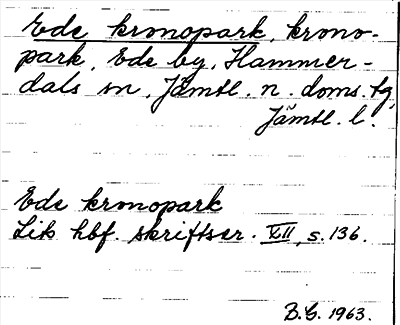 Ede kronopark, krono-
park, Ede by, Hammer-
dals sn, Jämtl. n. doms. tg,
Jämtl. l.
Ede kronopark
Lik hbf. skriftser. XII, s. 136.
B.G. 1963.